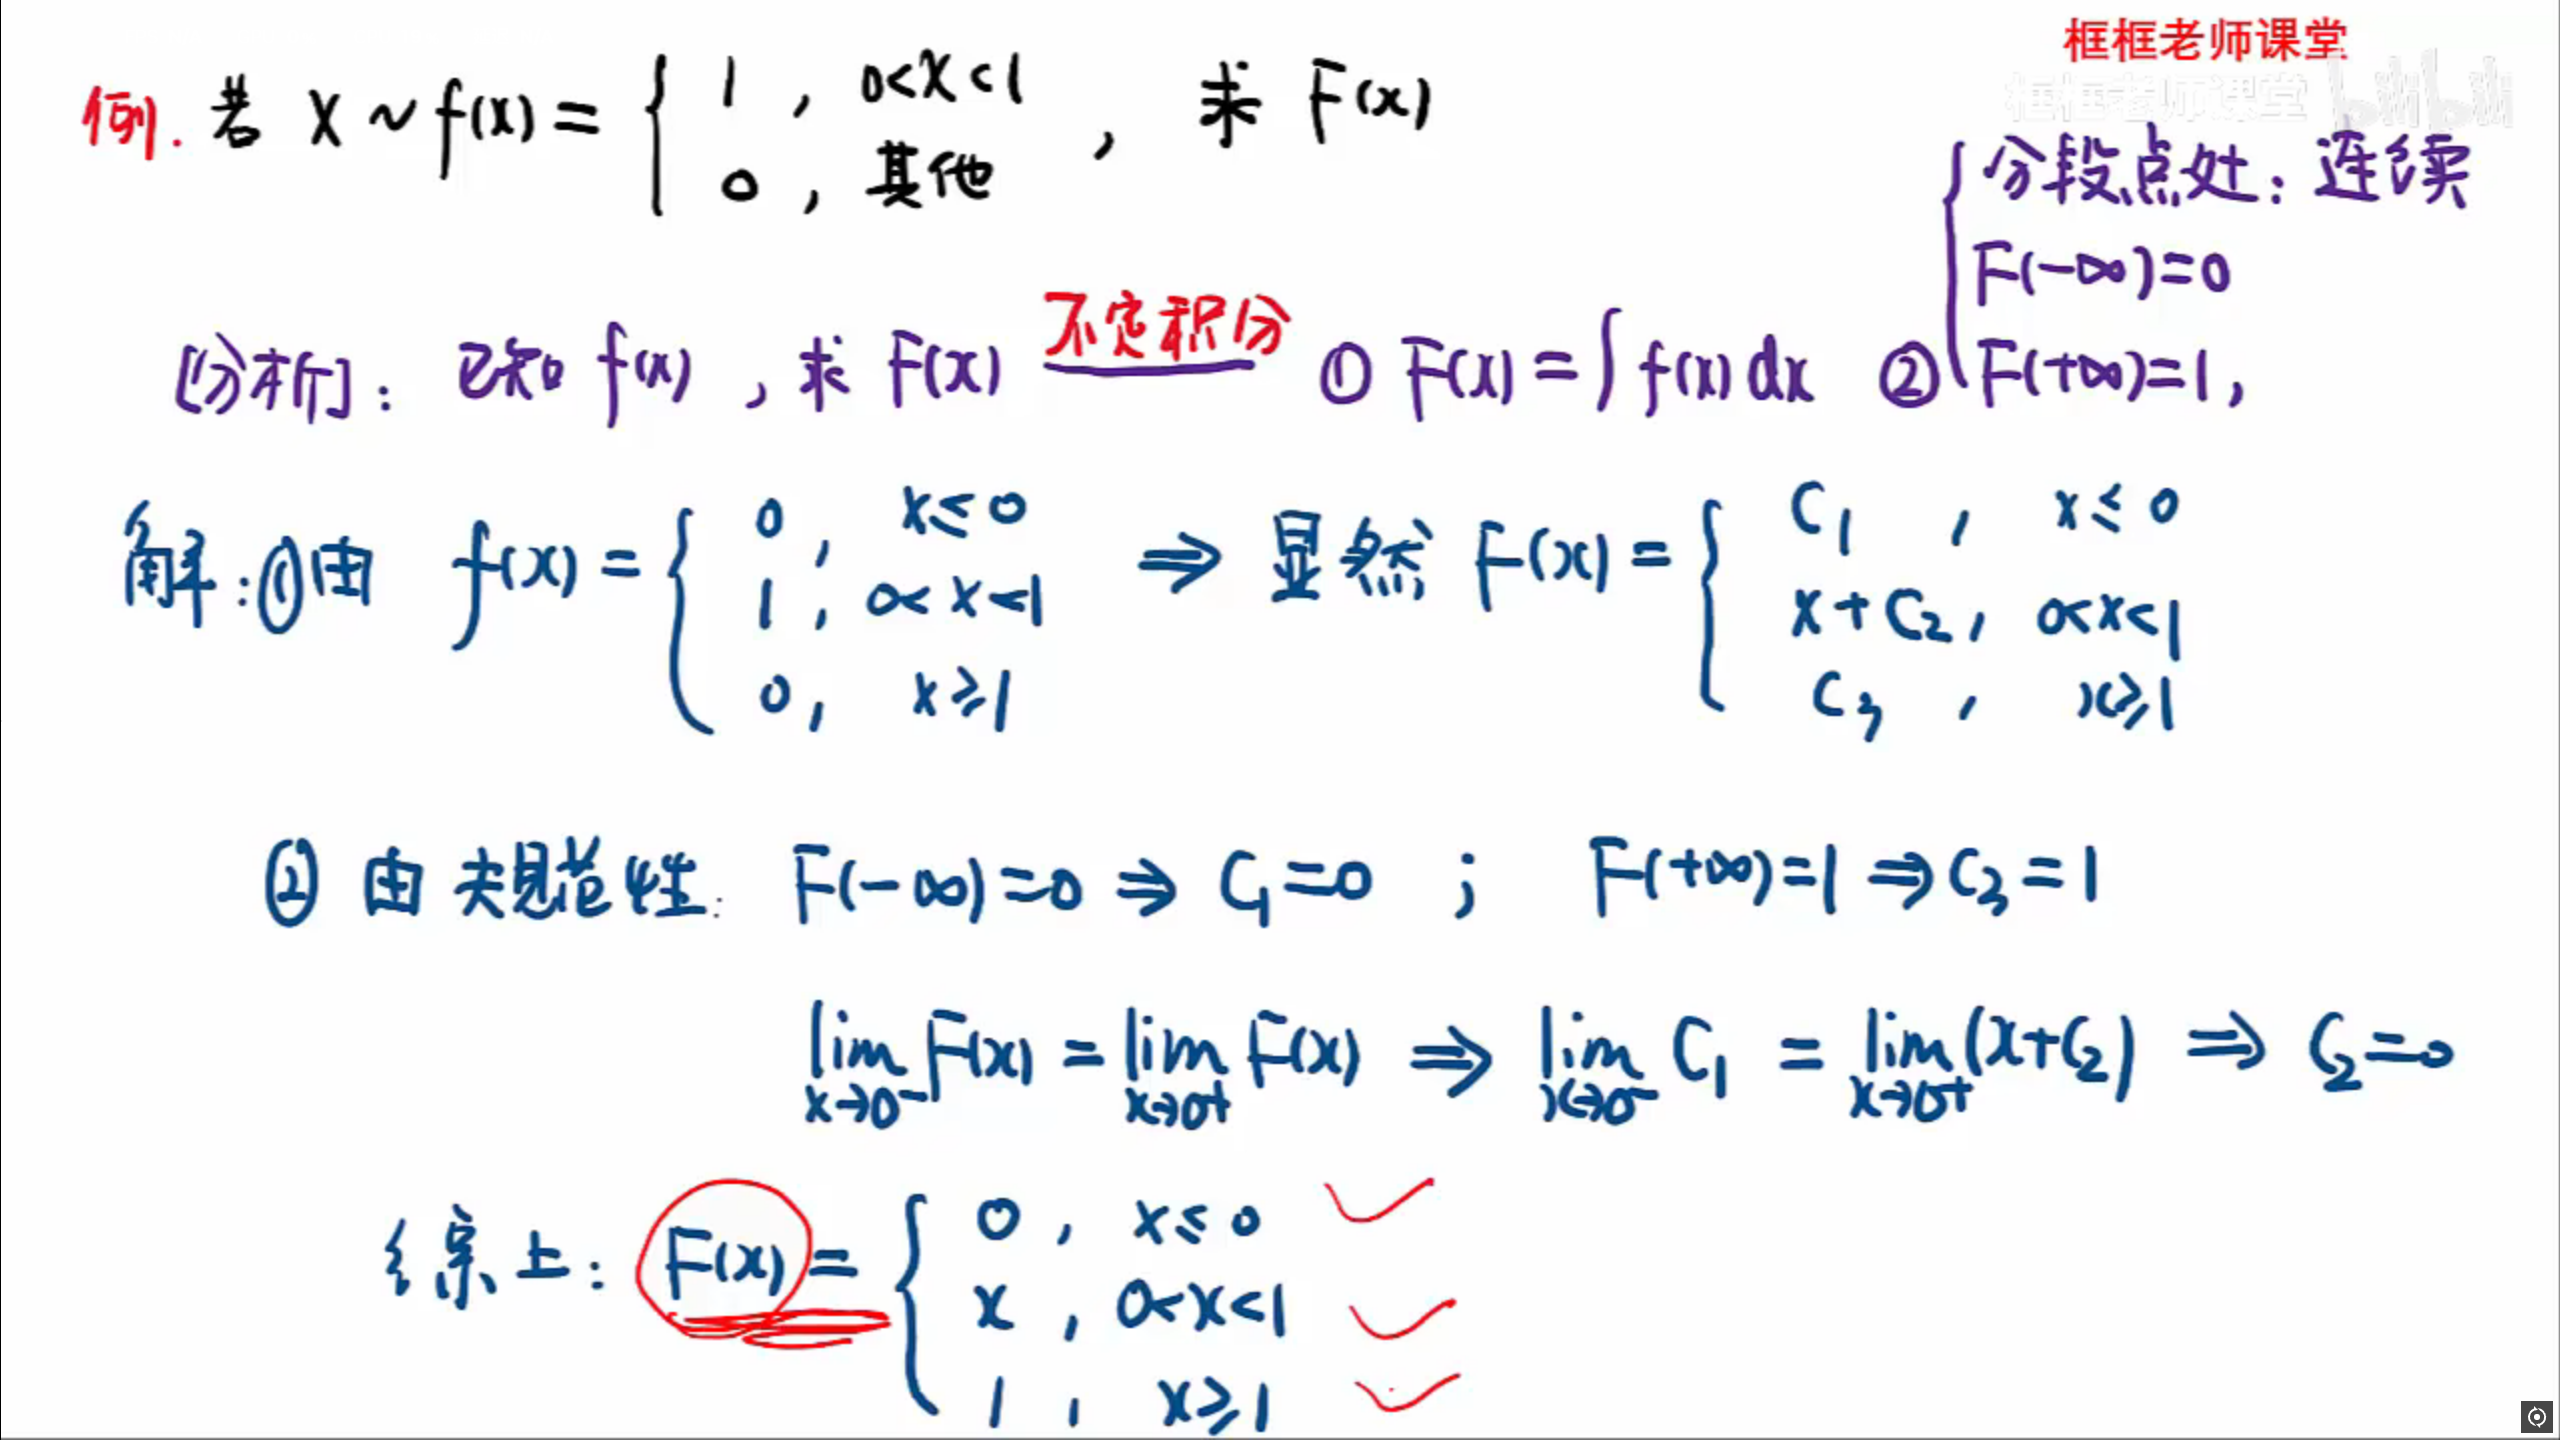 框框老师课堂
框框老师课堂 bilibili
例. 若 X ~ f(x) = { 1 , 0<x<1
0 , 其他 , 求 F(x)
[分析]: 已知 f(x) , 求 F(x) 不定积分 ① F(x) = ∫ f(x) dx ② { 分段点处: 连续
F(-∞)=0
F(+∞)=1,
解: ①由 f(x) = { 0 , x≤0
1 , 0<x<1
0 , x≥1
⇒ 显然 F(x) = { C₁ , x≤0
x+C₂ , 0<x<1
C₃ , x≥1
② 由规范性: F(-∞)=0 ⇒ C₁=0 ; F(+∞)=1 ⇒ C₃=1
lim x→0⁻ F(x) = lim x→0⁺ F(x) ⇒ lim x→0⁻ C₁ = lim x→0⁺ (x+C₂) ⇒ C₂=0
综上: F(x) = { 0 , x≤0
x , 0<x<1
1 , x≥1